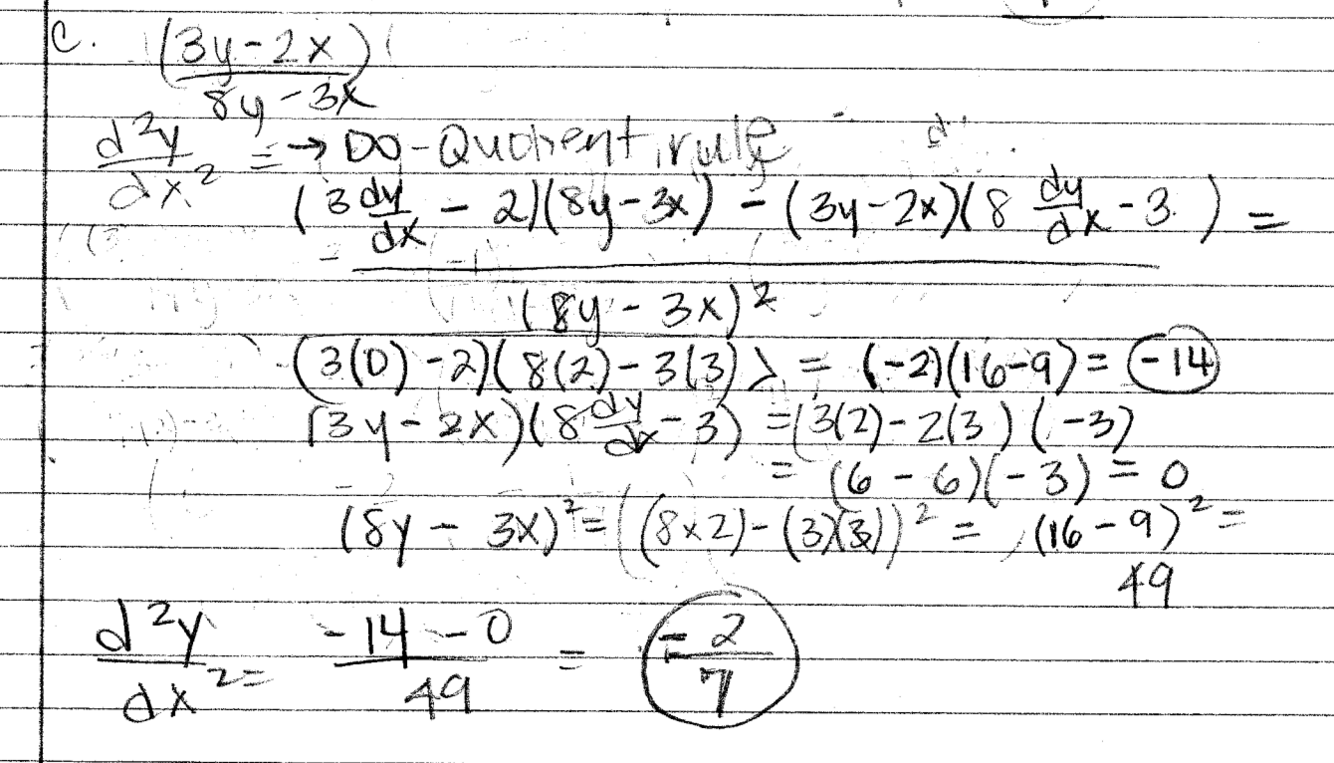 c. (3y-2x)
8y-3x
d²y/dx² = → Do-Quotient rule
(3 dy/dx - 2)(8y-3x) - (3y-2x)(8 dy/dx - 3) =
(8y - 3x)²
(3(0) - 2)(8(2) - 3(3)) = (-2)(16-9) = -14
(3y - 2x)(8 dy/dx - 3) = (3(2) - 2(3)(-3)
= (6 - 6)(-3) = 0
(8y - 3x)² = ((8×2)-(3)(3))² = (16-9)² =
49
d²y/dx² = -14 - 0/49 = -2/7